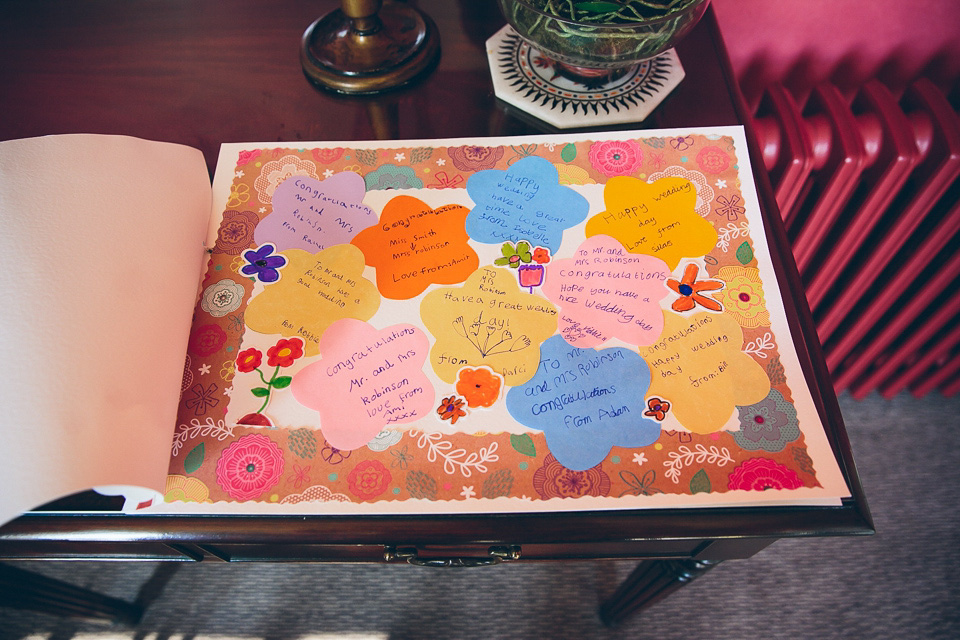 Congratulations
Mr and Mrs
Robinson
from
Miss Smith
Mrs robinson
Love from
Happy
wedding
have a great
time love
from Isobelle
Happy wedding
day
Love from
silas
To Mr and Mrs
Robinson have a
great wedding
from
To
Mrs
Robinson
Have a great wedding
day!
from
Darci
To Mr. and
Mrs Robinson
congratulations
Hope you have a
nice Wedding day
Congratulations
Mr. and Mrs
Robinson
love from
Ami
xxxx
To Mr.
and Mrs Robinson
Congratulations
From Adan
Congratulations
Happy wedding
day
from